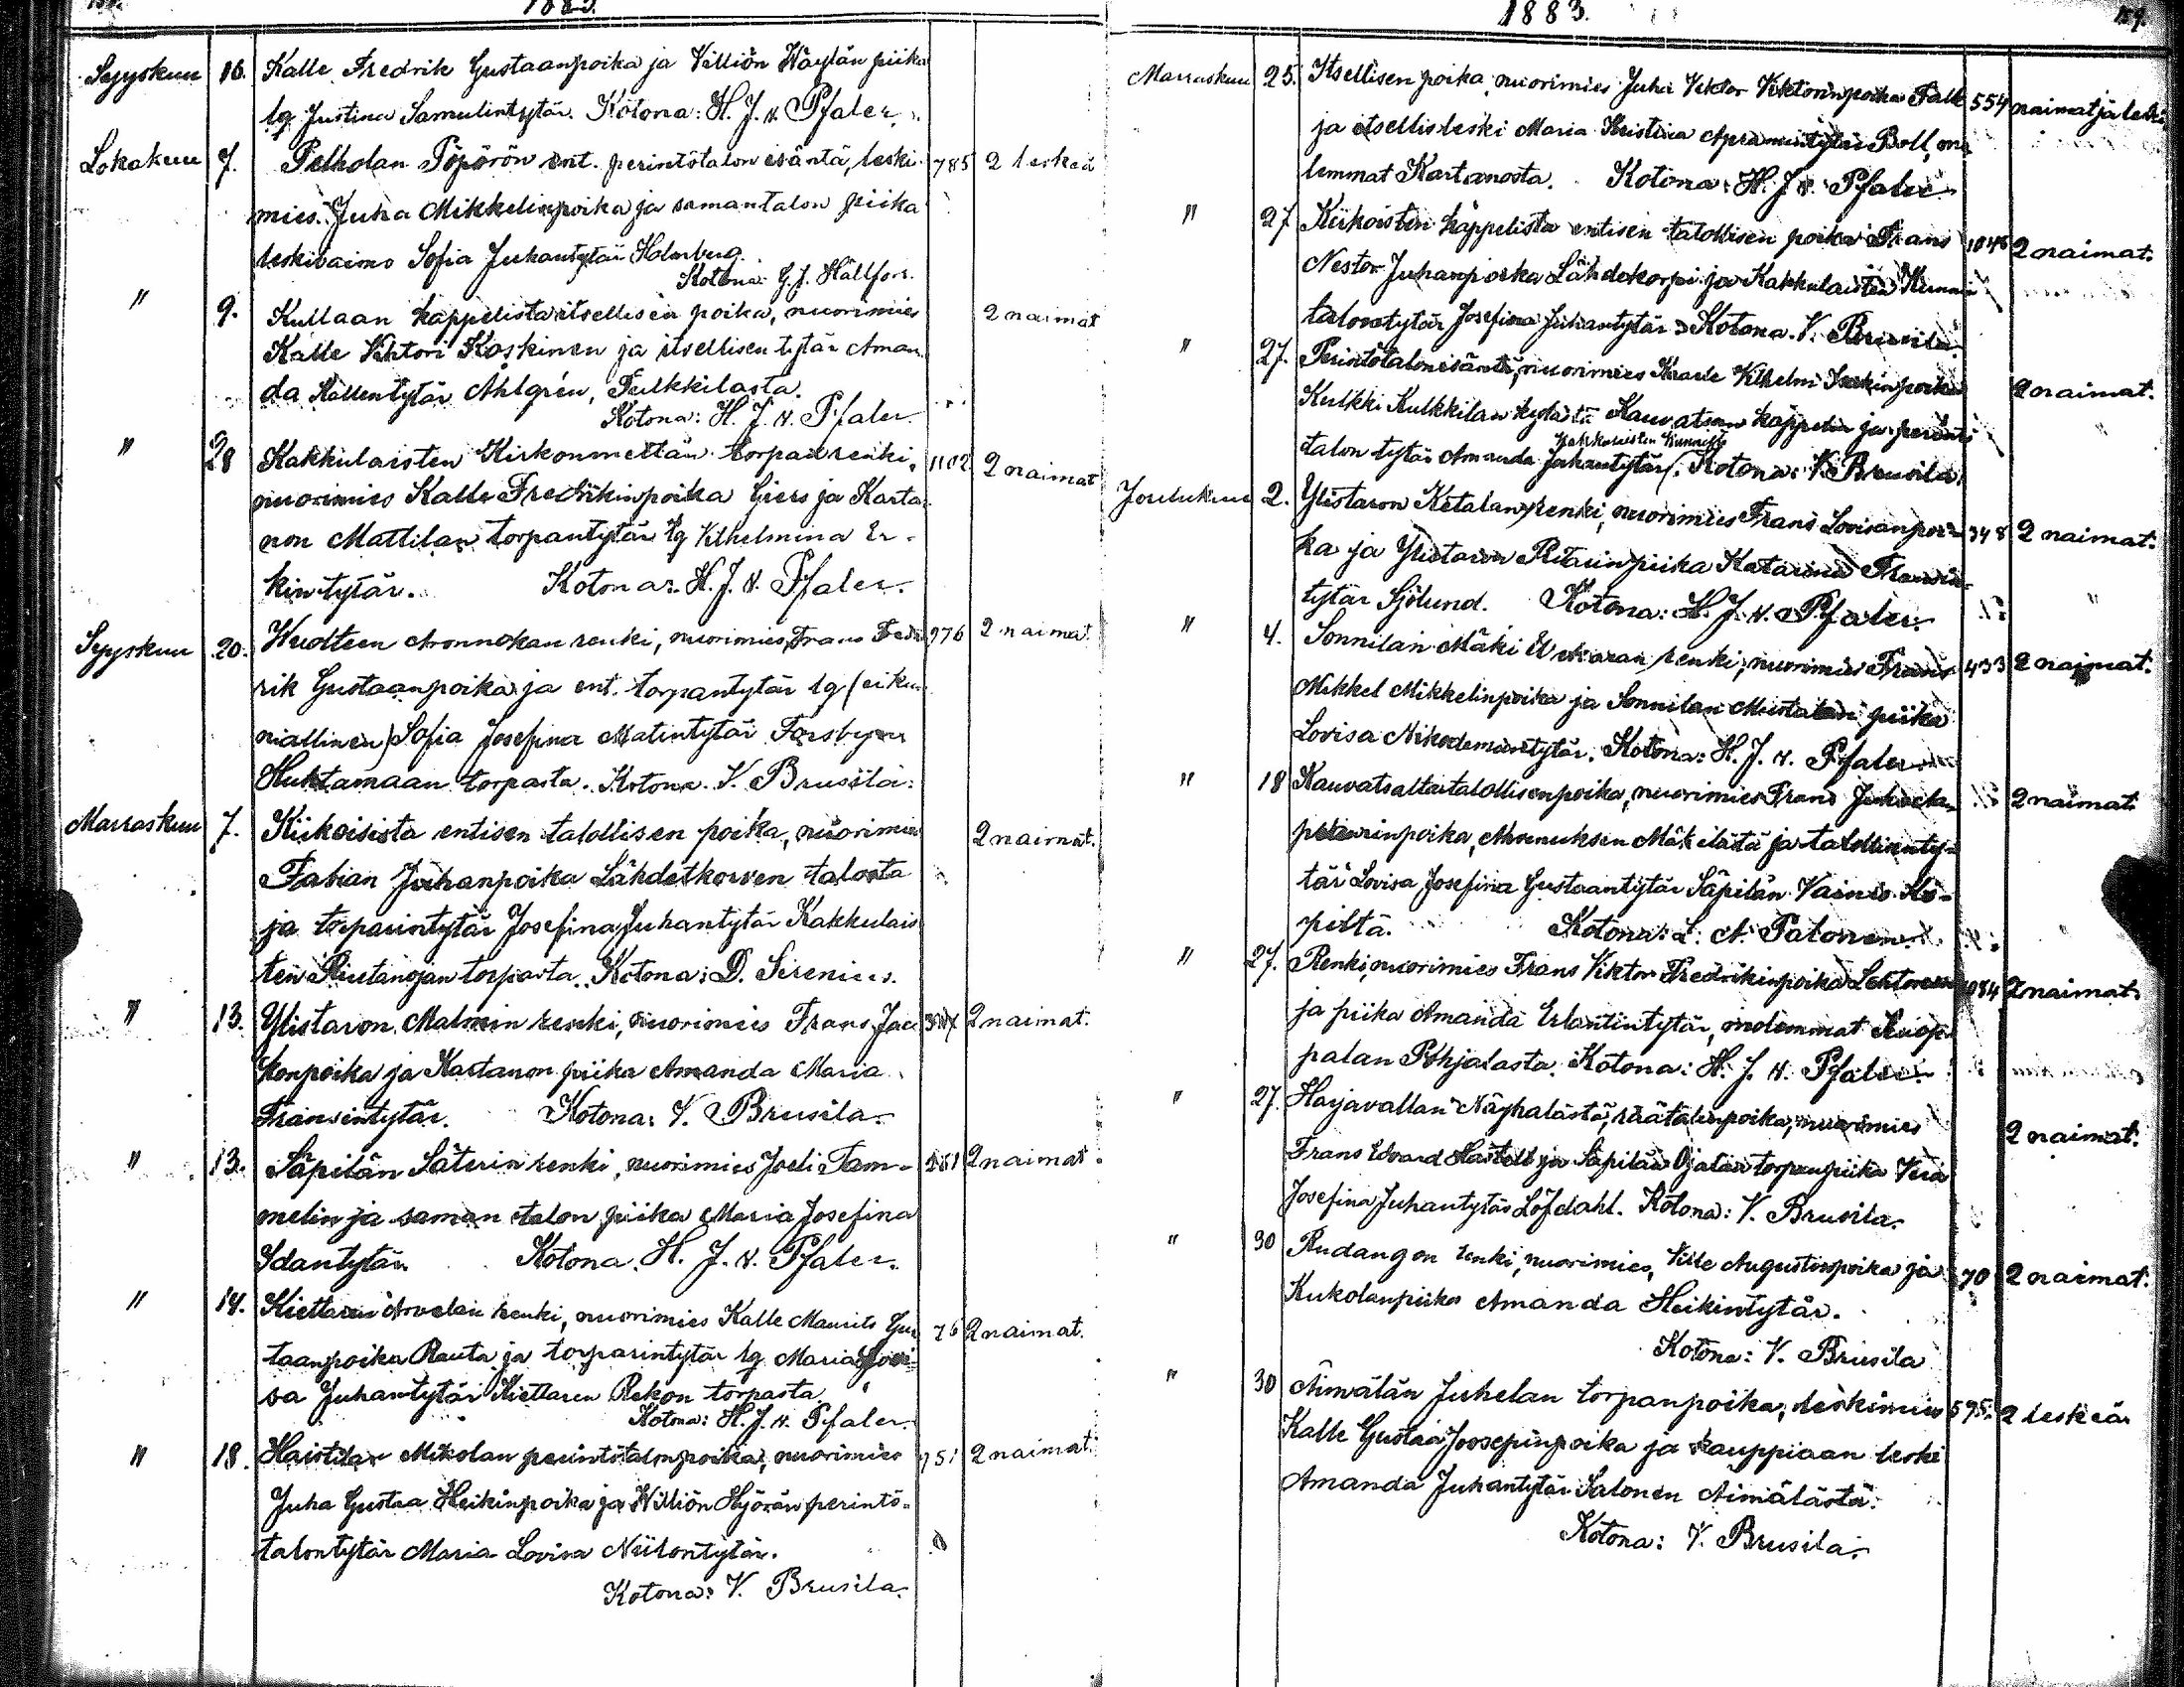 1883.
Syyskuu 16. Kalle Fredrik Gustaanpoika ja Villiön Häylän piika
lg Justina Samulintytär. Kotona: H. J. v. Pfaler.
Lokakuu 7. Pelholan Pöpörön ent. perintötalon isäntä, leski- 785 2 leskeä
mies Juha Mikkelinpoika ja samantalon piika
leskivaimo Sofia Juhantytär Holmberg.
Kotona: G. J. Hällfors.
" 9. Kullaan kappelista itsellisen poika, nuorimies 2 naimat
Kalle Vihtori Koskinen ja itsellisen tytär Aman
da Kallentytär Ahlgrén, Pulkkilasta.
Kotona: H. J. v. Pfaler
" 28 Kakkulaisten Kirkonmettän torpan renki, 1102 2 naimat
nuorimies Kalle Fredrikinpoika Giers ja Karta
non Mattilan torpantytär lg Vilhelmina Er-
kintytär. Kotona: H. J. v. Pfaler.
Syyskuu 20. renki, nuorimies, Frans Fred 976 2 naimat.
rik Gustaanpoika ja ent. torpantytär lg (eiku
niallinen) Sofia Josefina Matintytär Forsbyn
Huhtamaan torpasta. Kotona. V. Brusila.
Marraskuu 7. Kiikoisista entisen talollisen poika, nuorimies 2 naimat.
Fabian Juhanpoika Lähdetkorven talosta
ja torparintytär Josefina Juhantytär Kakkulais
ten torpasta. Kotona: D. Sirenius.
" 13. Ylistaron Malmin renki, nuorimies Frans Jaa 2 naimat.
konpoika ja Kartanon piika Amanda Maria
Fransintytär. Kotona: V. Brusila.
" 13. Säpilän Säterin renki, nuorimies Joeli Tam- 251 2 naimat.
melin ja saman talon piika Maria Josefina
Idantytär. Kotona. H. J. v. Pfaler.
" 14. Kiettaren Arvelan renki, nuorimies Kalle Maurits Gus 76 2 naimat.
taanpoika Rauta ja torparintytär lg Maria Lovi-
sa Juhantytär Kiettaren Rekon torpasta
Kotona: H. J. v. Pfaler.
" 18. Haistilan Mikolan perintötalonpoika, nuorimies 751 2 naimat.
Juha Gustaa Heikinpoika ja Villiön Hjörän perintö-
talontytär Maria Lovisa Niilontytär.
Kotona: V. Brusila.
1883. 159.
Marraskuu 25. Itsellisen poika, nuorimies Juha Viktor Viktorinpoika Falk 554 naimat ja leski
ja itsellisleski Maria Kristina Apramintytär Boll, mo
lemmat Kartanosta. Kotona: H. J. v. Pfaler
" 27 Kiikoisten kappelista entisen talollisen poika Frans 1046 2 naimat.
Nestor Juhanpoika Lähdekorpi ja Kakkulaisten
talontytär Josefina Juhantytär Kotona. V. Brusila.
" 27. Perintötalonisäntä, nuorimies Kaarle Vilhelm Iisakinpoika 2 naimat.
Kulkki Kulkkilan kylästä Kauvatsan kappelia ja perintö
talon tytär Amanda Juhantytär. Kotona: V. Brusila.
Joulukuu 2. Ylistaron Ketalan renki, nuorimies Frans Lovisanpoi- 348 2 naimat.
ka ja Ylistaron piika Katarina Fransin-
tytär Sjölund. Kotona: H. J. v. Pfaler.
" 4. Sonnilan Mäki renki, nuorimies Frans 433 2 naimat.
Mikkel Mikkelinpoika ja Sonnilan Mustalan piika
Lovisa Nikodemuntytär. Kotona: H. J. v. Pfaler
" 18 Kauvatsalta talollisenpoika, nuorimies Frans 2 naimat
Mäkilästä ja talollisenty-
tär Lovisa Josefina Gustaantytär Säpilän Vainio-Kö-
piltä. Kotona: L. A. Palonen.
" 27. Renki, nuorimies Frans Viktor Fredrikinpoika Lehtonen 1084 2 naimat.
ja piika Amanda Erlantintytär, molemmat Ruop
palan Pohjalasta. Kotona: H. J. v. Pfaler.
" 27. Harjavallan Näyhälästä, räätälinpoika, nuorimies 2 naimat.
Frans Edvard Hastell ja Säpilän Ojalan torpanpiika Vera
Josefina Juhantytär Löfdahl. Kotona: V. Brusila.
" 30 Rudangon renki, nuorimies, Ville Augustinpoika ja 70 2 naimat.
Kukolanpiika Amanda Heikintytär.
Kotona: V. Brusila
" 30 Äimälän Juhelan torpanpoika, leskimies 595. 2 leskeä
Kalle Gustaa Joosepinpoika ja kauppiaan leski
Amanda Juhantytär Salonen Äimälästä.
Kotona: V. Brusila.